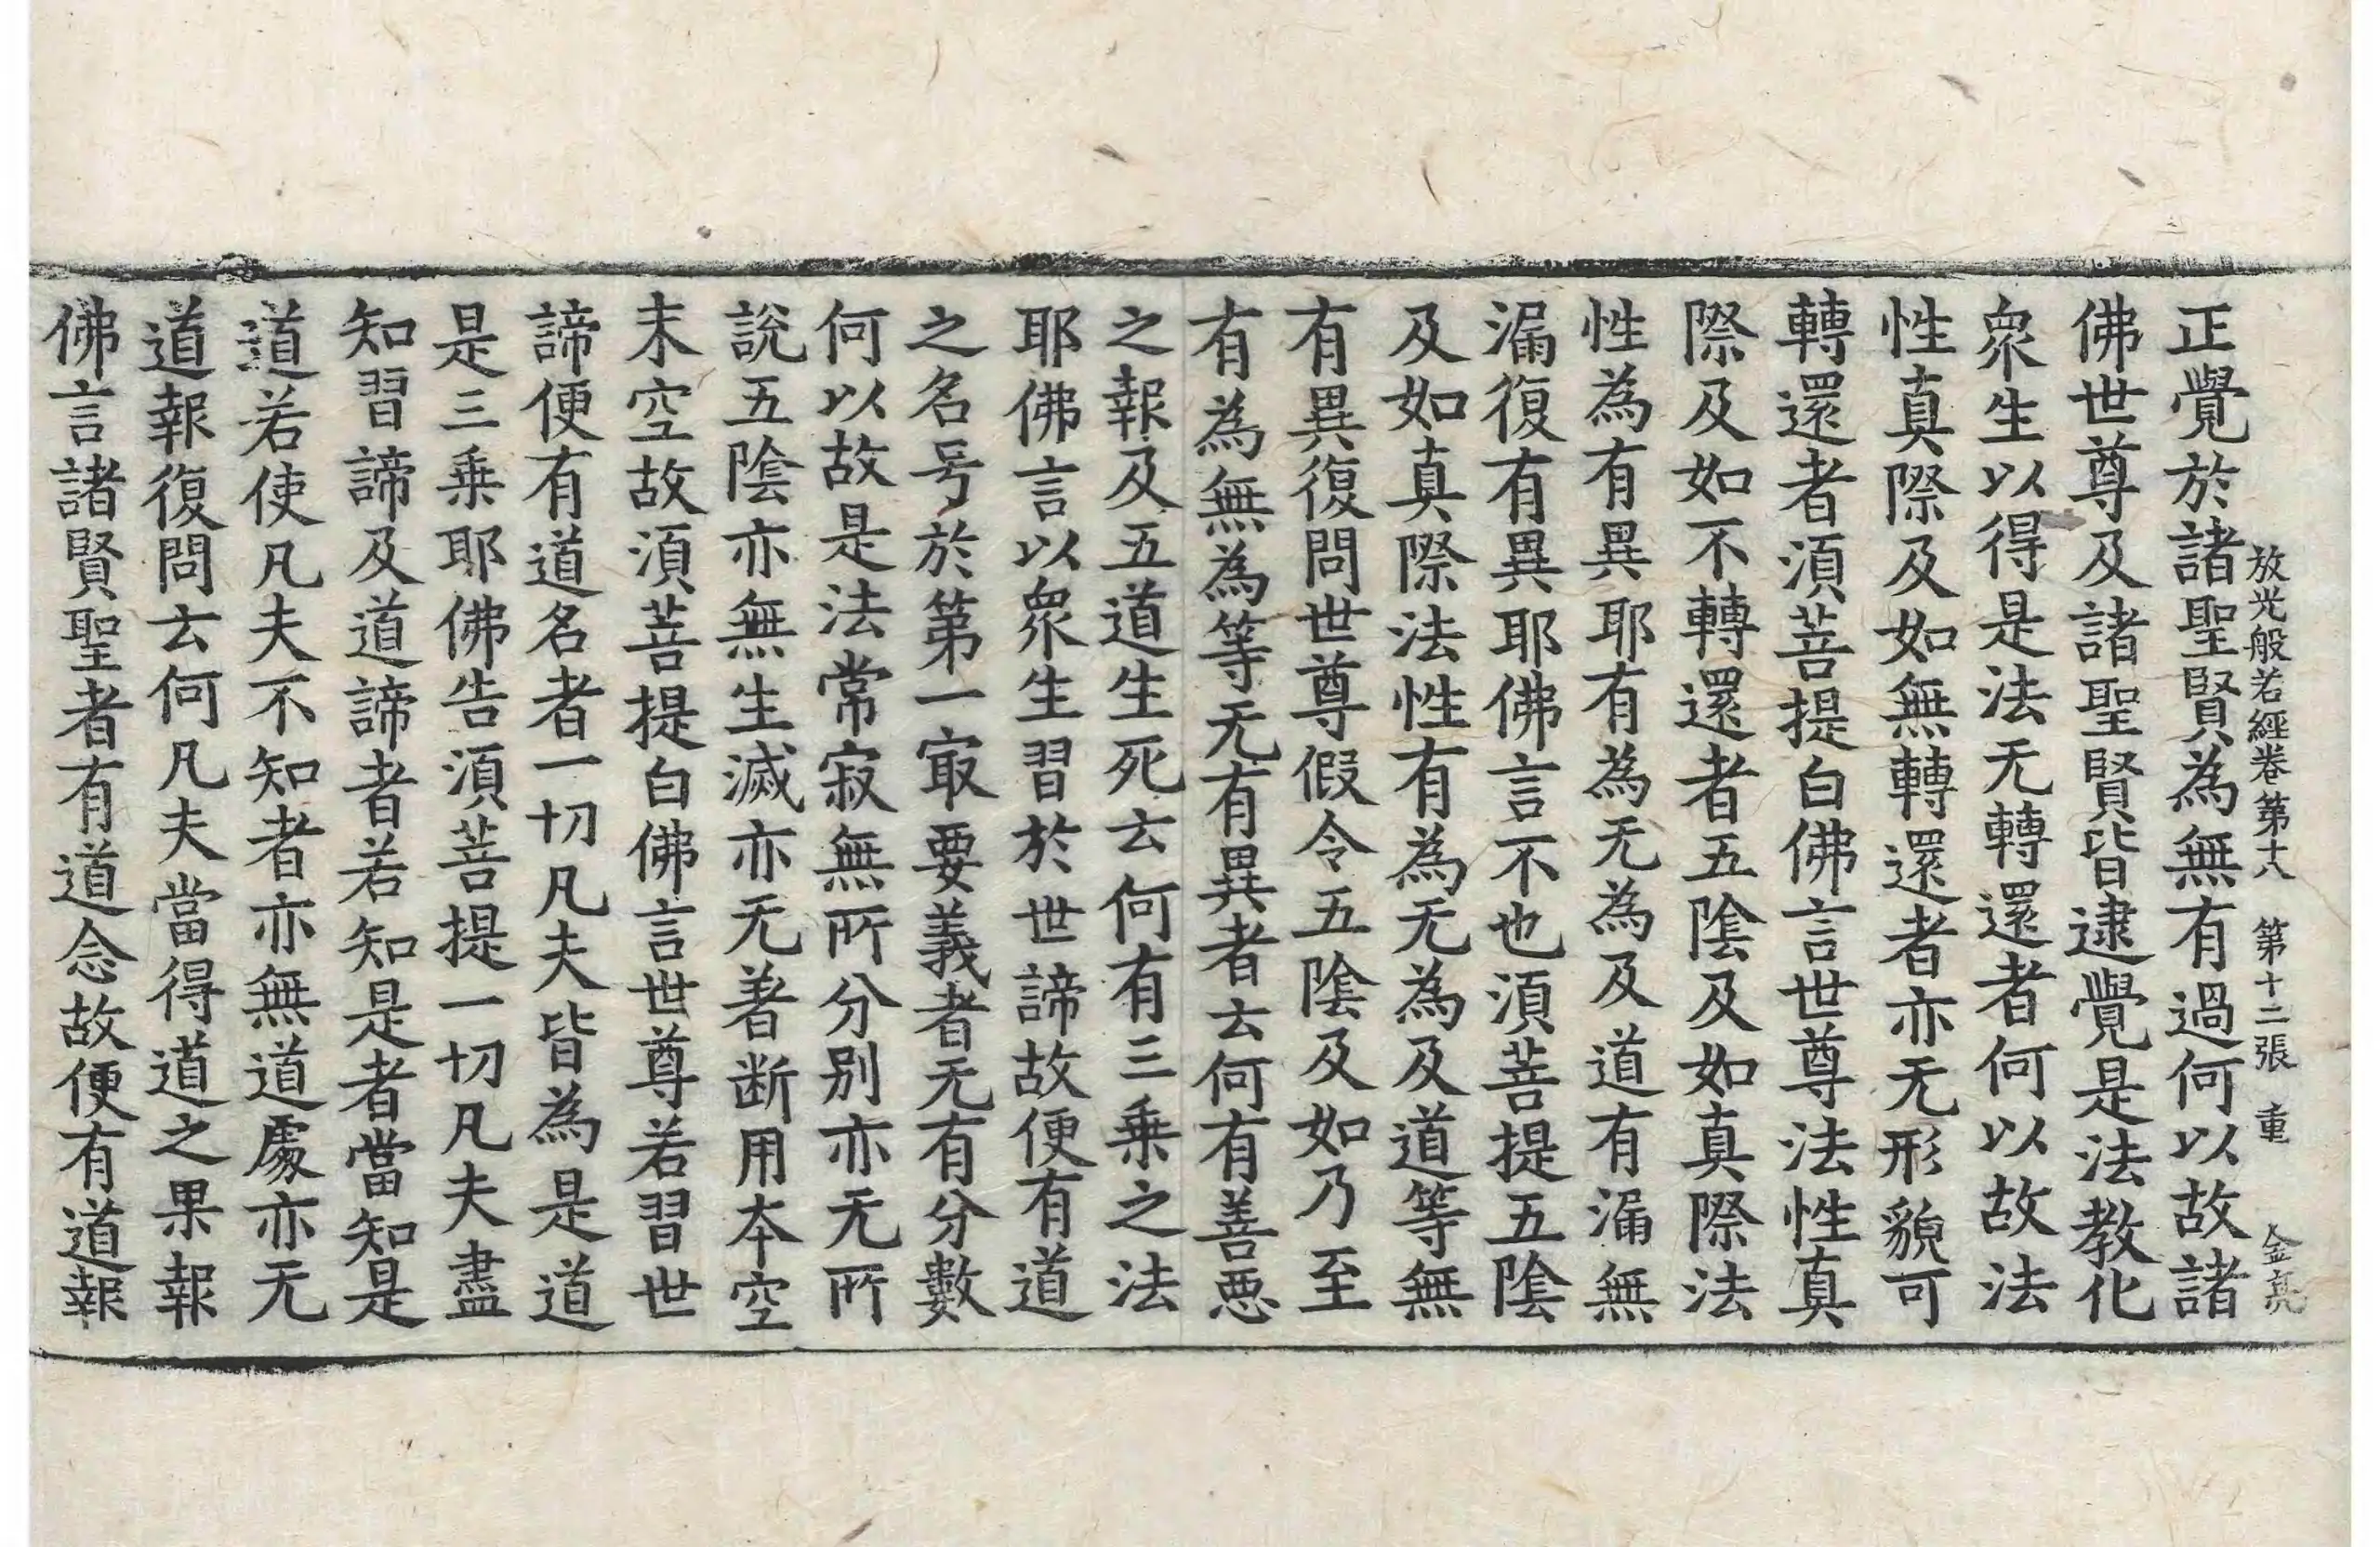 放光般若經卷第十八 第十二張 重 金亮
正覺於諸聖賢為無有過何以故諸
佛世尊及諸聖賢皆逮覺是法教化
衆生以得是法无轉還者何以故法
性真際及如無轉還者亦无形貌可
轉還者湏菩提白佛言世尊法性真
際及如不轉還者五陰及如真際法
性為有異耶有為无為及道有漏無
漏復有異耶佛言不也湏菩提五陰
及如真際法性有為无為及道等無
有異復問世尊假令五陰及如乃至
有為無為等无有異者云何有善悪
之報及五道生死云何有三乗之法
耶佛言以衆生習於世諦故便有道
之名号於第一㝡要義者无有分數
何以故是法常寂無所分別亦无所
說五陰亦無生滅亦无著断用本空
末空故湏菩提白佛言世尊若習世
諦便有道名者一切凡夫皆為是道
是三乗耶佛告湏菩提一切凡夫盡
知習諦及道諦者若知是者當知是
道若使凡夫不知者亦無道處亦无
道報復問云何凡夫當得道之果報
佛言諸賢聖者有道念故便有道報